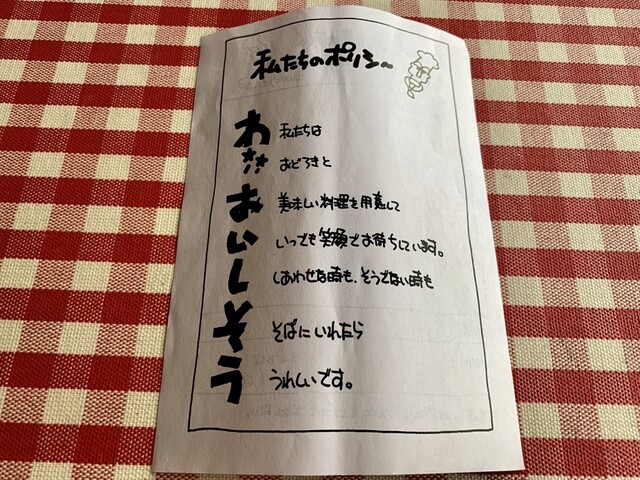 私たちのポリシ～
わ 私たちは
お゛ おどろきと
お 美味しい料理を用意して
い いつでも笑顔でお待ちしています。
し しあわせな時も、そうでない時も
そ そばにいれたら
う うれしいです。